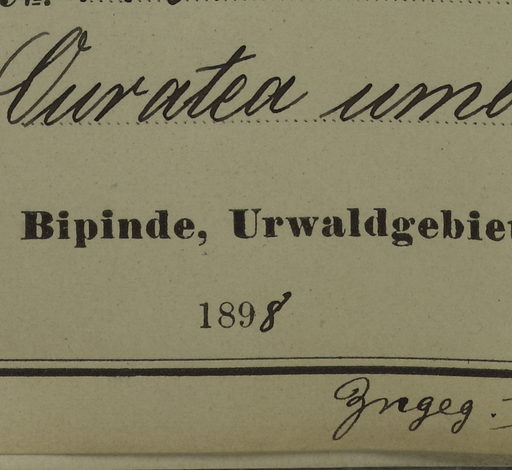 Ouratea umb
Bipinde, Urwaldgebiet
1898